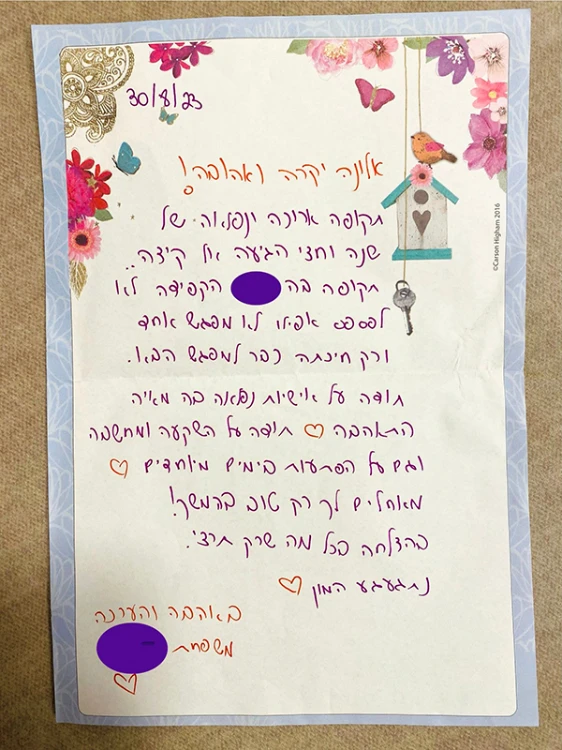 30/8/23
אלינה יקרה ואהובה!
תקופה ארוכה ונפלאה של
שנה וחצי הגיעה אל קיצה..
תקופה בה הקפידה לא
לפספס אפילו לא מפגש אחד
ורק חיכתה כבר למפגש הבא.
תודה על אישיות נפלאה בה מאיה
התאהבה ♡ תודה על השקעה ומחשבה
וגם על הפתעות בימים מיוחדים ♡
מאחלים לך רק טוב בהמשך!
בהצלחה בכל מה שרק תרצי.
נתגעגע המון ♡
באהבה והערכה
משפחת
♡
©Carson Higham 2016